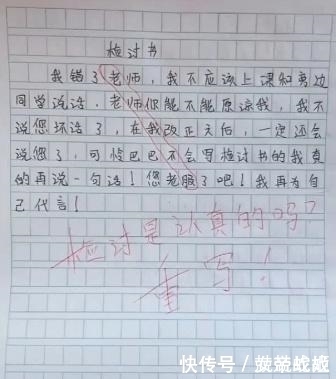 检讨书
我错了老师,我不应该上课和旁边
同学说话,老师你能不能原谅我,我不
说您坏话了,在我改正之后,一定还会
说您了,可怜巴巴不会写检讨书的我真
的再说一句话!您老服了吧!我再为自
己代言!
检讨是认真的吗?
重写!
快传号/